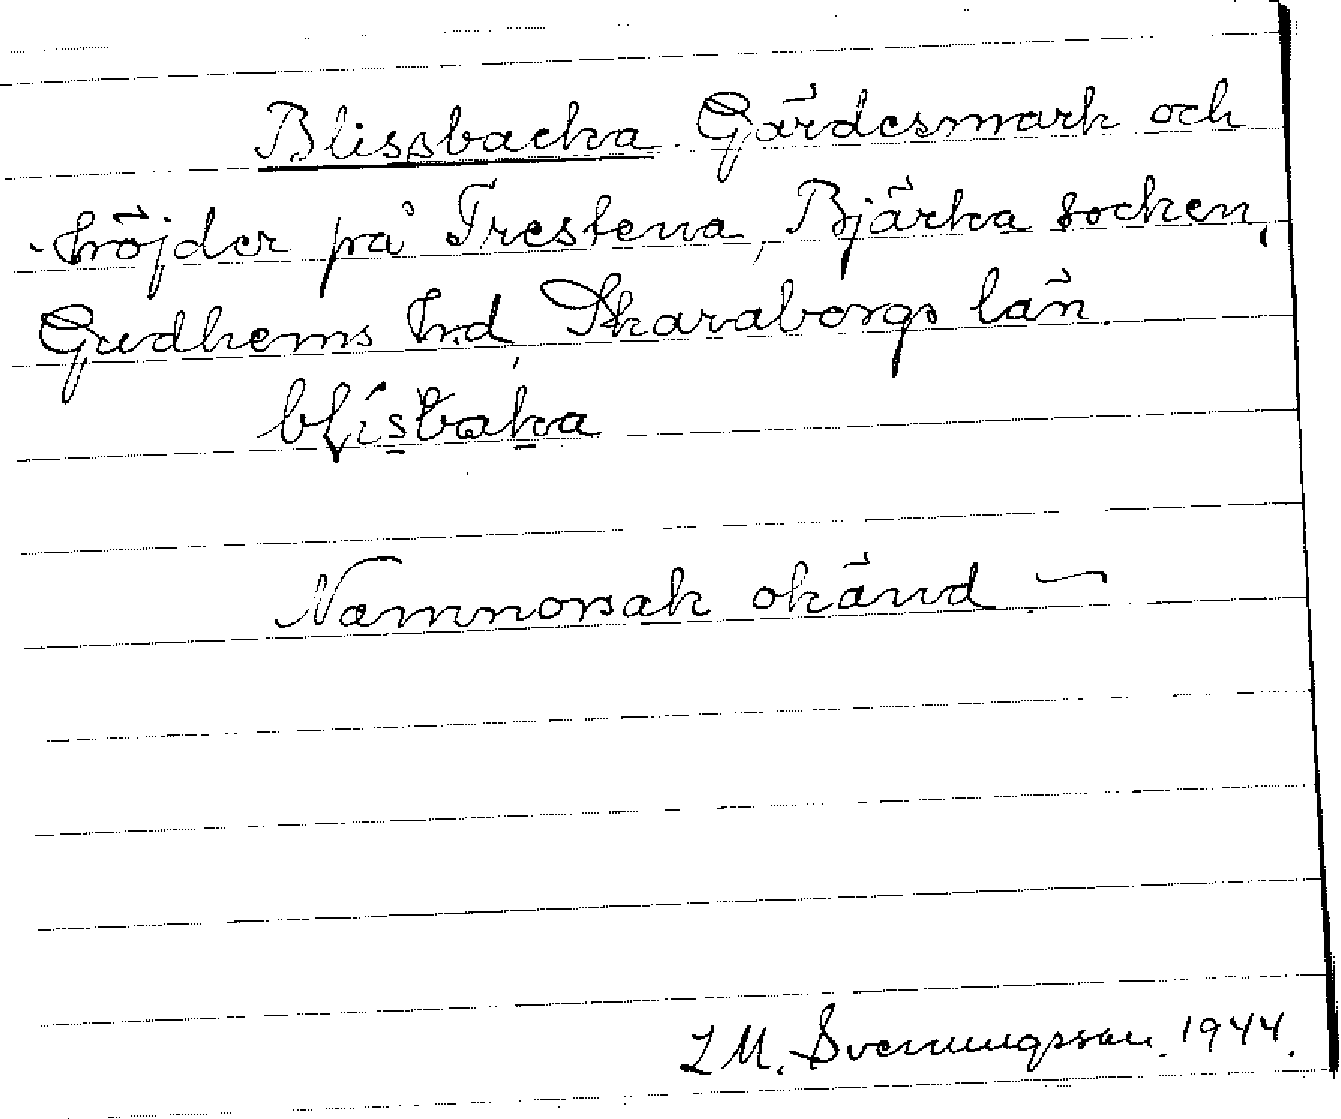 Blissbacka. Gärdesmark och
höjder på Trestena, Bjärka socken,
Gudhems hd, Skaraborgs län.
blisbaka
Namnorsak okänd –
L M. Svenungsson. 1944.